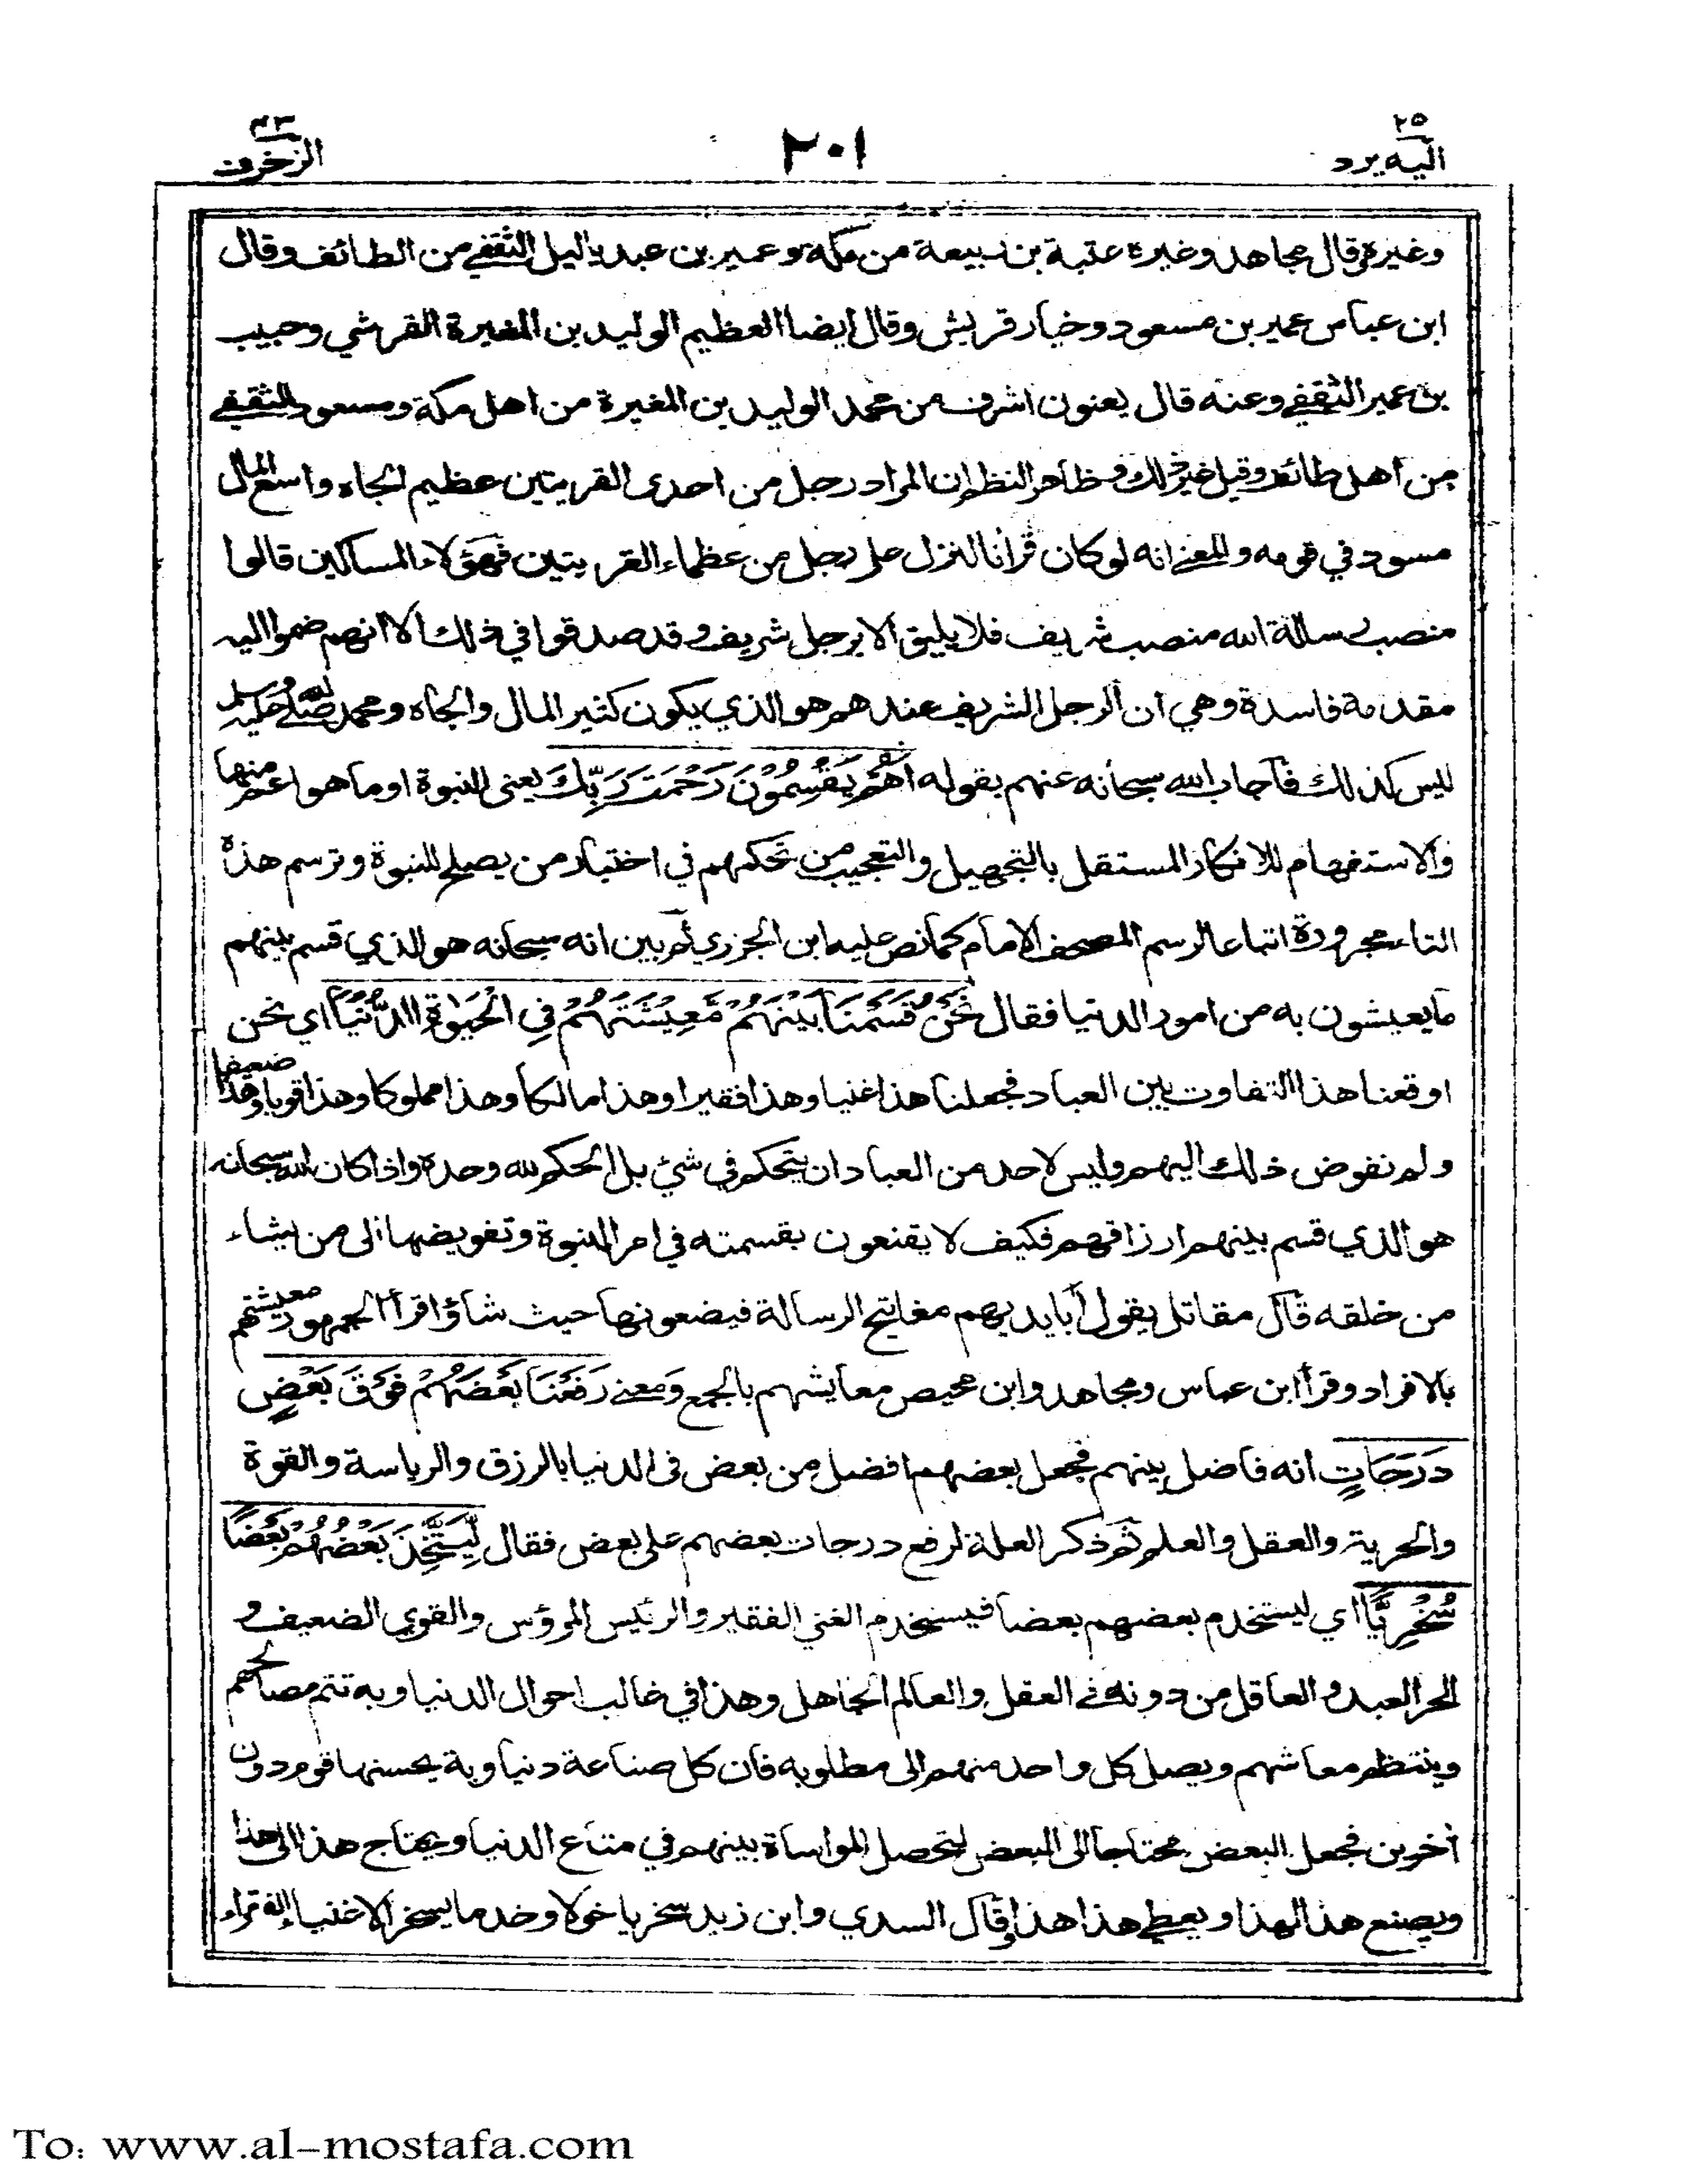 ٢٥
اليه يرد
٢٠١
٤٣
الزخرف
وغيرهم قال مجاهد وغيره عتبة بن ربيعة من مكة وعمير بن عبد ياليل الثقفي من الطائف وقال
ابن عباس عمير بن مسعود وخيار قريش وقال ايضا العظيم الوليد بن المغيرة القرشي وحبيب
بن عمير الثقفي وعنه قال يعنون اشرف من محمد الوليد بن المغيرة من اهل مكة ومسعود الثقفي
من اهل طائف وقيل غير ذلك وظاهر النظم ان المراد رجل من احدى القريتين عظيم الجاه واسع المال
مسود في قومه والمعنى انه لو كان قرأنا لنزل على رجل من عظماء القريتين فهؤلاء المساكين قالوا
منصب رسالة الله منصب شريف فلا يليق الا برجل شريف وقد صدقوا في ذلك الا انهم ضموا اليه
مقدمة فاسدة وهي ان الرجل الشريف عندهم هو الذي يكون كثير المال والجاه ومحمد صلى الله عليه وسلم
ليس كذلك فأجاب الله سبحانه عنهم بقوله أَهُمْ يَقْسِمُوْنَ رَحْمَتَ رَبِّكَ يعنى النبوة او ما هو اعم منها
والاستفهام للانكار المستقل بالتجهيل والتعجيب من تحكمهم في اختيار من يصلح للنبوة وترسم هذه
التاء مجرورة اتباعا لرسم المصحف الامام كما نص عليه ابن الجزري ثم بين انه سبحانه هو الذي قسم بينهم
ما يعيشون به من امور الدنيا فقال نَحْنُ قَسَمْنَا بَيْنَهُمْ مَّعِيْشَتَهُمْ فِي الْحَيٰوةِ الدُّنْيَا اي نحن
اوقعنا هذا التفاوت بين العباد فجعلنا هذا غنيا وهذا فقيرا وهذا مالكا وهذا مملوكا وهذا قويا وهذا ضعيفا
ولم نفوض ذلك اليهم وليس لاحد من العباد ان يتحكم في شئ بل الحكم لله وحده واذا كان الله سبحانه
هو الذي قسم بينهم ارزاقهم فكيف لا يقنعون بقسمته في امر النبوة وتفويضها الى من يشاء
من خلقه قال مقاتل يقول أبايديهم مفاتيح الرسالة فيضعونها حيث شاؤا قرأ الجمهور معيشتهم
بالافراد وقرأ ابن عباس ومجاهد وابن محيصن معايشهم بالجمع ومعنى رَفَعْنَا بَعْضَهُمْ فَوْقَ بَعْضٍ
دَرَجَاتٍ انه فاضل بينهم فجعل بعضهم افضل من بعض فى الدنيا بالرزق والرياسة والقوة
والحرية والعقل والعلم ثم ذكر العلة لرفع درجات بعضهم على بعض فقال لِّيَتَّخِذَ بَعْضُهُمْ بَعْضًا
سُخْرِيًّا اي ليستخدم بعضهم بعضا فيستخدم الغني الفقير والرئيس المرؤس والقوي الضعيف و
الحر العبد والعاقل من دونه في العقل والعالم الجاهل وهذا في غالب احوال الدنيا وبه تتم مصالحهم
وينتظم معاشهم ويصل كل واحد منهم الى مطلوبه فان كل صناعة دنياوية يحسنها قوم دون
أخرين فجعل البعض محتاجا الى البعض لتحصل المواساة بينهم في متاع الدنيا ويحتاج هذا الى هذا
ويصنع هذا لهذا ويعطي هذا هذا وقال السدي وابن زيد سخريا خولا وخدما يسخر الاغنياء الفقراء
To: www.al-mostafa.com